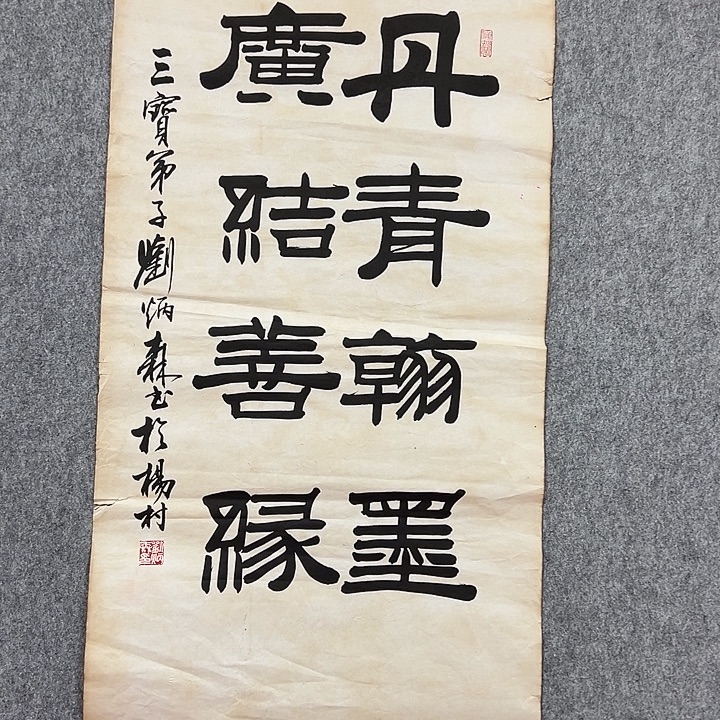 丹青翰墨
廣結善緣
三寶弟子劉炳森书於楊村